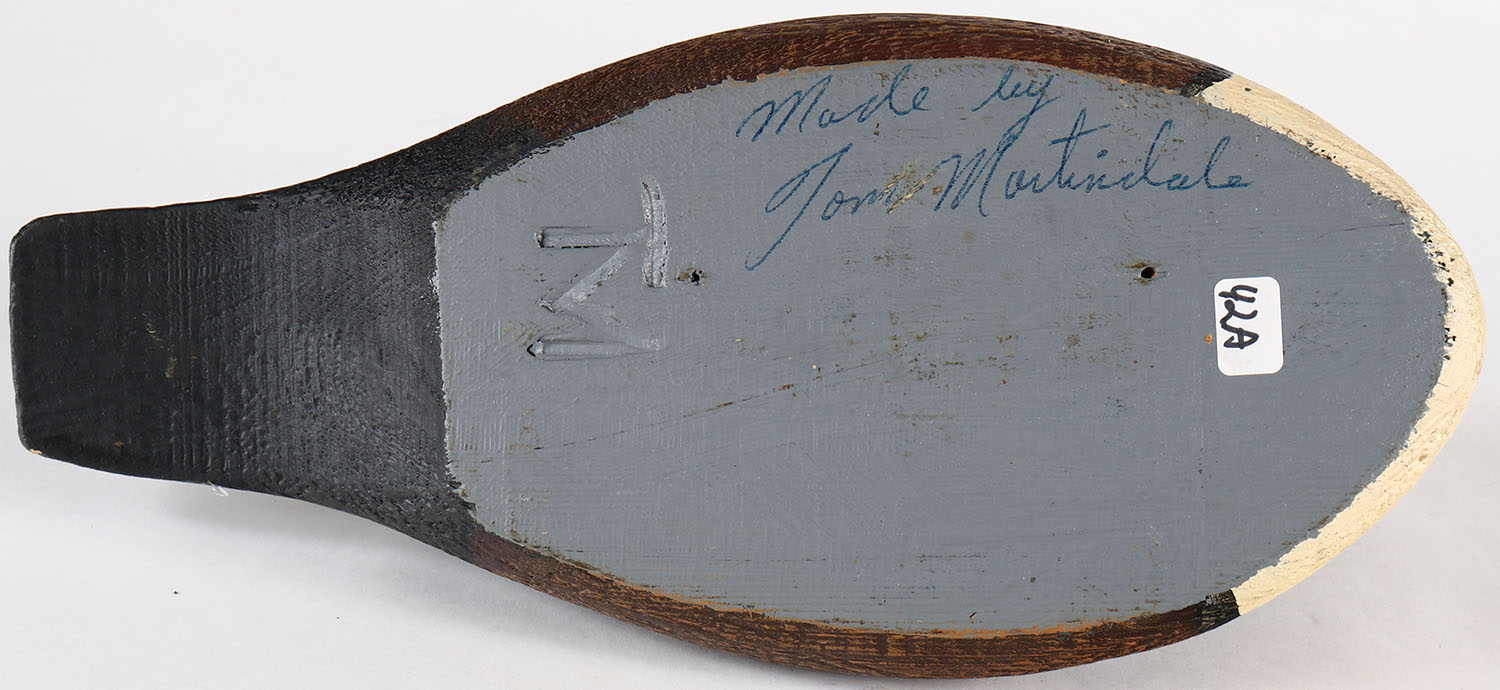 Made by
Tom Martindale
TM
42A